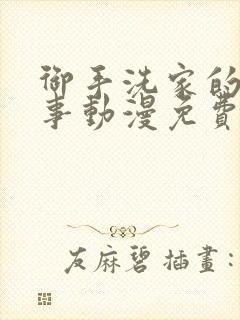 御手洗家的
事動漫免費
友麻碧 插畫: